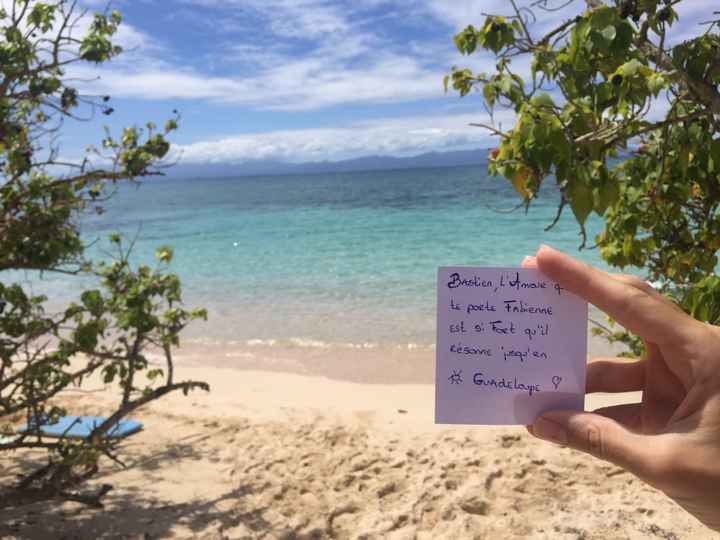 Bastien, L'Amour q
te porte Fabienne
est si Fort qu'il
résonne jusqu'en
Guadeloupe